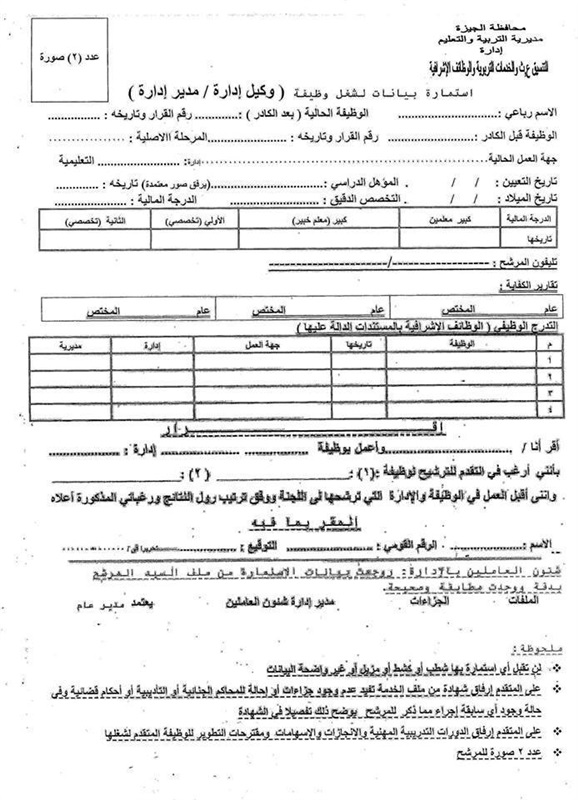 محافظة الجيزة
مديرية التربية والتعليم
إدارة
للتنسيق ع.ث والخدمات التربوية والوظائف الإشرافية
عدد (٢) صورة
استمارة بيانات لشغل وظيفة ( وكيل إدارة / مدير إدارة )
الاسم رباعي: .................... الوظيفة الحالية ( بعد الكادر ) :............ رقم القرار وتاريخه : ...............
الوظيفة قبل الكادر: .................. رقم القرار وتاريخه: .................. المرحلة الاصلية : ..................
جهة العمل الحالية.................................... إدارة: .................... التعليمية
تاريخ التعيين : / / . المؤهل الدراسي :......................(يرفق صور معتمدة) تاريخه : .............
تاريخ الميلاد : / / . التخصص الدقيق : ...................... الدرجة المالية : ..................
الدرجة المالية كبير معلمين كبير (معلم خبير) الأولي (تخصصي) الثانية (تخصصي)
تاريخها
تليفون المرشح : --------------------/--------------------
تقارير الكفاية :
عام المختص عام المختص عام المختص
التدرج الوظيفي ( الوظائف الاشرافية بالمستندات الدالة عليها )
م الوظيفة تاريخها جهة العمل إدارة مديرية
١
٢
٣
٤
إقـــــــــــرار
أقر أنا / ..............................وأعمل بوظيفة .................. إدارة : ..................
بأنني أرغب في التقدم للترشيح لوظيفة :(١) : ____________ (٢) : ____________
وانني أقبل العمل في الوظيفة والإدارة التي ترشحها لى اللجنة ووفق ترتيب رول النتائج ورغباتي المذكورة أعلاه
المقر بما فيه
الاسم : .................. الرقم القومي : .................. التوقيع : .................. تحريرا فى / ..................
شئون العاملين بالإدارة : روجعت بيانات الاستمارة من ملف السيد المرشح
بدقة ووجدت مطابقة وصحيحة.
الملفات الجزاءات مدير إدارة شئون العاملين يعتمد مدير عام
ملحوظة :
❖ لن تقبل أي استمارة بها شطب أو كشط أو مزيل أو غير واضحة البيانات
❖ على المتقدم إرفاق شهادة من ملف الخدمة تفيد عدم وجود جزاءات أو إحالة للمحاكم الجنائية أو التأديبية أو أحكام قضائية وفى
حالة وجود أي سابقة إجراء مما ذكر للمرشح يوضح ذلك تفصيلا في الشهادة
❖ على المتقدم إرفاق الدورات التدريبية المهنية والانجازات والاسهامات ومقترحات التطوير للوظيفة المتقدم لشغلها
❖ عدد ٢ صورة للمرشح